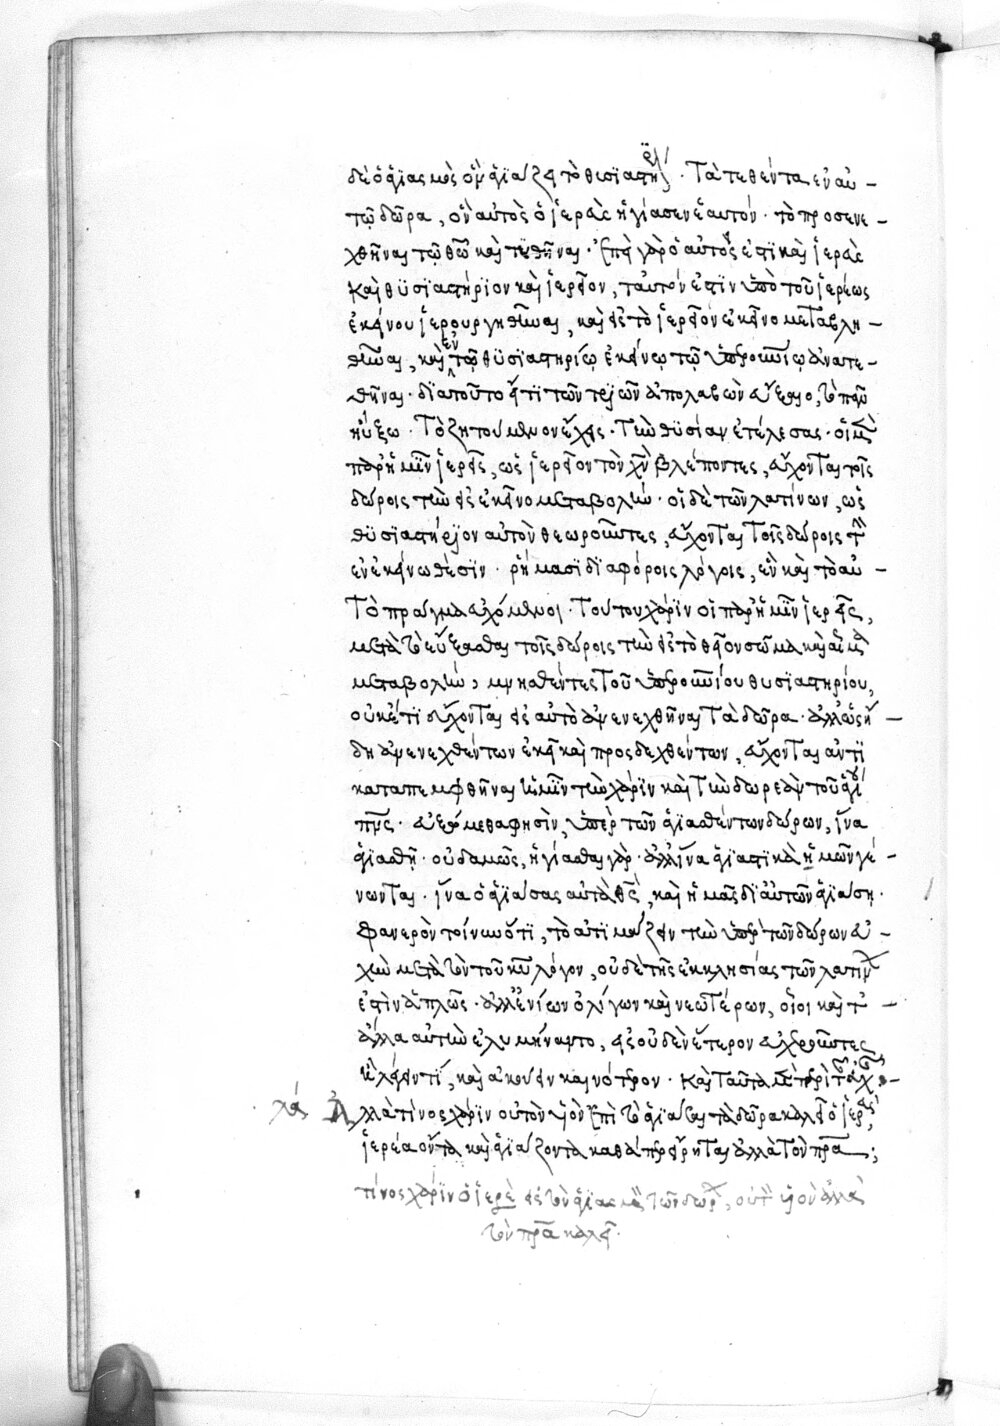 δὲ ὁ ἁγιασμὸς ὃν ἁγιάζει τὸ θυσιαστήριον. Τὰ τεθέντα ἐν αὐ-
τῷ δῶρα, ὃν αὐτὸς ὁ ἱερεὺς ἡγίασεν ἑαυτόν. τὸ προσενε-
χθῆναι τῷ θεῷ καὶ τυθῆναι. Ἐπεὶ γὰρ ὁ αὐτός ἐστι καὶ ἱερεὺς
καὶ θυσιαστήριον καὶ ἱερεῖον, ταυτόν ἐστιν ὑπὸ τοῦ ἱερέως
ἐκείνου ἱερουργηθῆναι, καὶ εἰς τὸ ἱερεῖον ἐκεῖνο μεταβλη-
θῆναι, καὶ ἐν τῷ θυσιαστηρίῳ ἐκείνῳ τῷ ὑπερουρανίῳ ἀνατε-
θῆναι. διὰ τοῦτο εἴ τι τῶν τριῶν ἀπολαβὼν εὔξαιο, τὸ πᾶν
ηὔξω. Τὸ ζητούμενον ἔχεις. Τὴν θυσίαν ἐτέλεσας. οἱ μὲν
παρ' ἡμῖν ἱερεῖς, ὡς ἱερεῖον τὸν χν βλέποντες, εὔχονται τοῖς
δώροις τὴν εἰς ἐκεῖνο μεταβολήν. οἱ δὲ τῶν λατίνων, ὡς
θυσιαστήριον αὐτὸν θεωροῦντες, εὔχονται τοῖς δώροις τὴν
ἐν ἐκείνῳ θέσιν. ῥήμασι διαφόροις λόγοις, ἓν καὶ τὸ αὐ-
τὸ πρᾶγμα εὐχόμενοι. Τούτου χάριν οἱ παρ' ἡμῖν ἱερεῖς,
μετὰ τὸ εὔξασθαι τοῖς δώροις τὴν εἰς τὸ θεῖον σῶμα καὶ αἷμα
μεταβολήν, μνησθέντες τοῦ ὑπερουρανίου θυσιαστηρίου,
οὐκέτι εὔχονται εἰς αὐτὸ ἀνενεχθῆναι τὰ δῶρα. ἀλλ' ὡς ἤ-
δη ἀνενεχθέντων ἐκεῖ καὶ προσδεχθέντων, εὔχονται ἀντι
καταπεμφθῆναι ἡμῖν τὴν χάριν καὶ τὴν δωρεὰν τοῦ ἁγίου
πνς. εὐξώμεθα φησὶν, ὑπὲρ τῶν ἁγιασθέντων δώρων, ἵνα
ἁγιασθῇ. οὐδαμῶς, ἡγίασται γάρ. ἀλλ' ἵνα ἁγιαστικὰ ἡμῶν γέ-
νωνται. ἵνα ὁ ἁγιάσας αὐτὰ θς, καὶ ἡμᾶς δι' αὐτῶν ἁγιάσῃ.
Φανερὸν τοίνυν ὅτι, τὸ ἀτιμάζειν τὴν ὑπὲρ τῶν δώρων εὐ-
χὴν μετὰ τὸν τοῦ κυ λόγον, οὐδὲ τῆς ἐκκλησίας τῶν λατίνων
ἐστὶν ἁπλῶς. ἀλλ' ἐνίων ὀλίγων καὶ νεωτέρων, οἳ καὶ τὰ
ἄλλα αὐτὴν ἐλυμήναντο, εἰς οὐδὲν ἕτερον εὐκαιροῦντες
ἢ λέγειν τι, καὶ ἀκούειν καινότερον. Καὶ ταῦτα μὲν περὶ τῆς εὐχῆς.
λας Ἀλλὰ τίνος χάριν οὐ τὸν υἱὸν ἐπὶ τὸ ἁγιάσαι τὰ δῶρα καλεῖ ὁ ἱερεύς,
ἱερέα ὄντα καὶ ἁγιάζοντα καθάπερ εἴρηται ἀλλὰ τὸν πρα;
τίνος χάριν ὁ ἱερεὺς εἰς τὸν ἁγιασμὸν τῶν δώρων, οὐ τὸν υἱὸν ἀλλὰ
τὸν πρα καλεῖ.